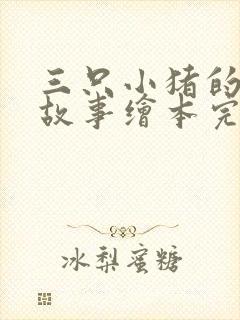 三只小猪的
故事繪本完
冰梨蜜糖